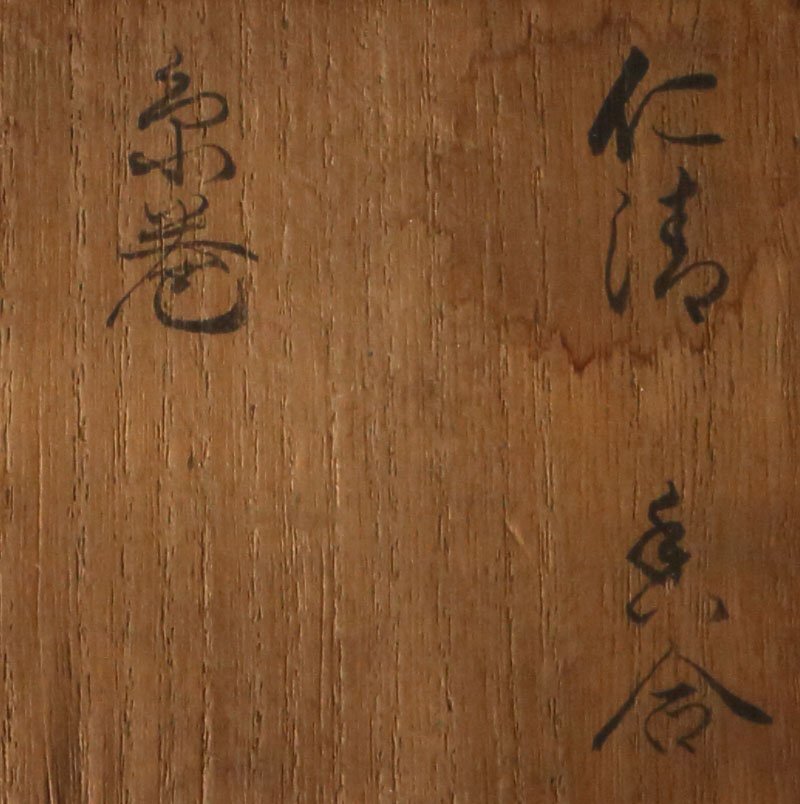 仁清 香合
粽巻